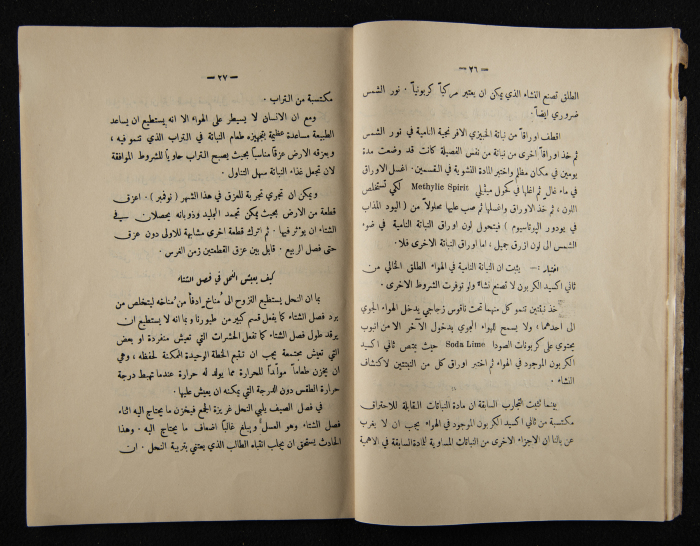 — ٢٦ —
الطلق تصنع النشاء الذي يمكن ان يعتبر مركباً كربونياً . نور الشمس
ضروري ايضاً .
اقطف اوراقاً من نباتة الخبيزي الافرنجية النامية في نور الشمس
ثم خذ اوراقاً اخرى من نباتة من نفس الفصيلة كانت قد وضعت مدة
يومين في مكان مظلم واختبر المادة النشوية في القسمين . اغسل الاوراق
في ماء غالٍ ثم اغلها في كحول ميثلي Methylie Spirit لكي تستخلص
اللون ، ثم خذ الاوراق واغسلها ثم صب عليها محلولاً من ( اليود المذاب
في يودور البوتاسيوم ) فيتحول لون اوراق النباتة النامية في ضوء
الشمس الى لون ازرق جميل ، اما اوراق النباتة الاخرى فلا .
اختبار :— يثبت ان النباتة النامية في الهواء الطلق الخالي من
ثاني اكسيد الكربون لا تصنع نشاءً ولو توفرت الشروط الاخرى .
خذ نبتتين تنمو كل منهما تحت ناقوس زجاجي يدخل الهواء الجوي
الى احدهما ، ولا يسمح للهواء الجوي بدخول الآخر الا من انبوب
يحتوي على كربونات الصودا Soda Lime حيث يمتص ثاني اكسيد
الكربون الموجود في الهواء ثم اختبر اوراق كل من النبتتين لاكتشاف
النشاء .
بينما تثبت التجارب السابقة ان مادة النباتات القابلة للاحتراق
مكتسبة من ثاني اكسيد الكربون الموجود في الهواء يجب ان لا يغرب
عن بالنا ان الاجزاء الاخرى من النباتات المساوية للمادة السابقة في الاهمية
— ٢٧ —
مكتسبة من التراب .
ومع ان الانسان لا يسيطر على الهواء الا انه يستطيع ان يساعد
الطبيعة مساعدة عظيمة بتجهيزه طعام النباتة في التراب الذي تنمو فيه ،
وبعزقه الارض عزقاً مناسباً بحيث يصبح التراب حاوياً للشروط الموافقة
لان تجعل غذاء النباتة سهل التناول .
ويمكن ان تجري تجربة للعزق في هذا الشهر ( نوفمبر ) . اعزق
قطعة من الارض بحيث يمكن تجمد الجليد وذوبانه يحصلان في
الشتاء ان يوثر فيها . ثم اترك قطعة اخرى مشابهة للاولى دون عزق
حتى فصل الربيع . قابل بين عزق القطعتين زمن الغرس .
كيف يعيش النحل في فصل الشتاء
بما ان النحل يستطيع النزوح الى مُناخ ادفأ من مُناخه ليتخلص من
برد فصل الشتاء كما يفعل قسم كبير من طيورنا وبما انه لا يستطيع ان
يرقد طول فصل الشتاء كما تفعل الحشرات التي تعيش منفردة او بعض
التي تعيش مجتمعة يجب ان تقيم الخطة الوحيدة الممكنة لحفظه ، وهي
ان يخزن طعاماً موأداً للحرارة مما يولد له حرارة عندما تهبط درجة
حرارة الطقس دون الدرجة التي يمكنه ان يعيش عليها .
في فصل الصيف يلبي النحل غريزة الجمع فيخزن ما يحتاج اليه اثناء
فصل الشتاء وهو العسل ويبلغ غالباً اضعاف ما يحتاج اليه . وهذا
الحادث يستحق ان يجلب انتباه الطالب الذي يعتني بتربية النحل . ان